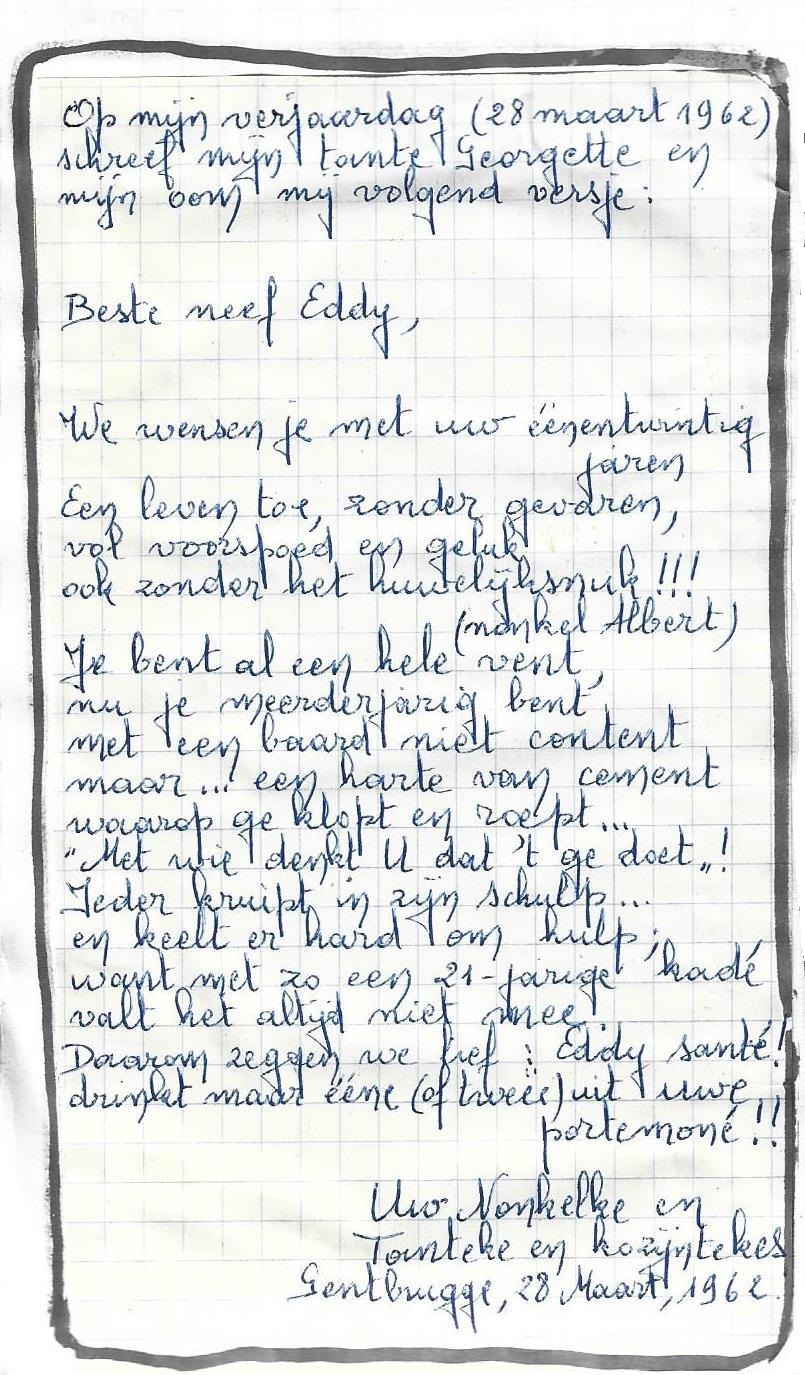 Op mijn verjaardag (28 maart 1962)
schreef mijn tante Georgette en
mijn oom mij volgend versje:
Beste neef Eddy,
We wensen je met uw éénentwintig
jaren
Een leven toe, zonder gevaren,
vol voorspoed en geluk
ook zonder het huwelijksnuk!!!
(nonkel Albert)
Je bent al een hele vent,
nu je meerderjarig bent
met een baard niet content
maar... een harte van cement
waarop ge klopt en roept...
"Met wie denkt U dat 't ge doet„!
Ieder kruipt in zijn schulp...
en keelt er hard om hulp;
want met zo een 21-jarige kadé
valt het altijd niet mee.
Daarom zeggen we lief: Eddy santé!
drinkt maar ééne (of tweeë) uit uwe
portemoné!!
Uw Nonkelke en
Tanteke en kozijntekes
Gentbrugge, 28 Maart, 1962.